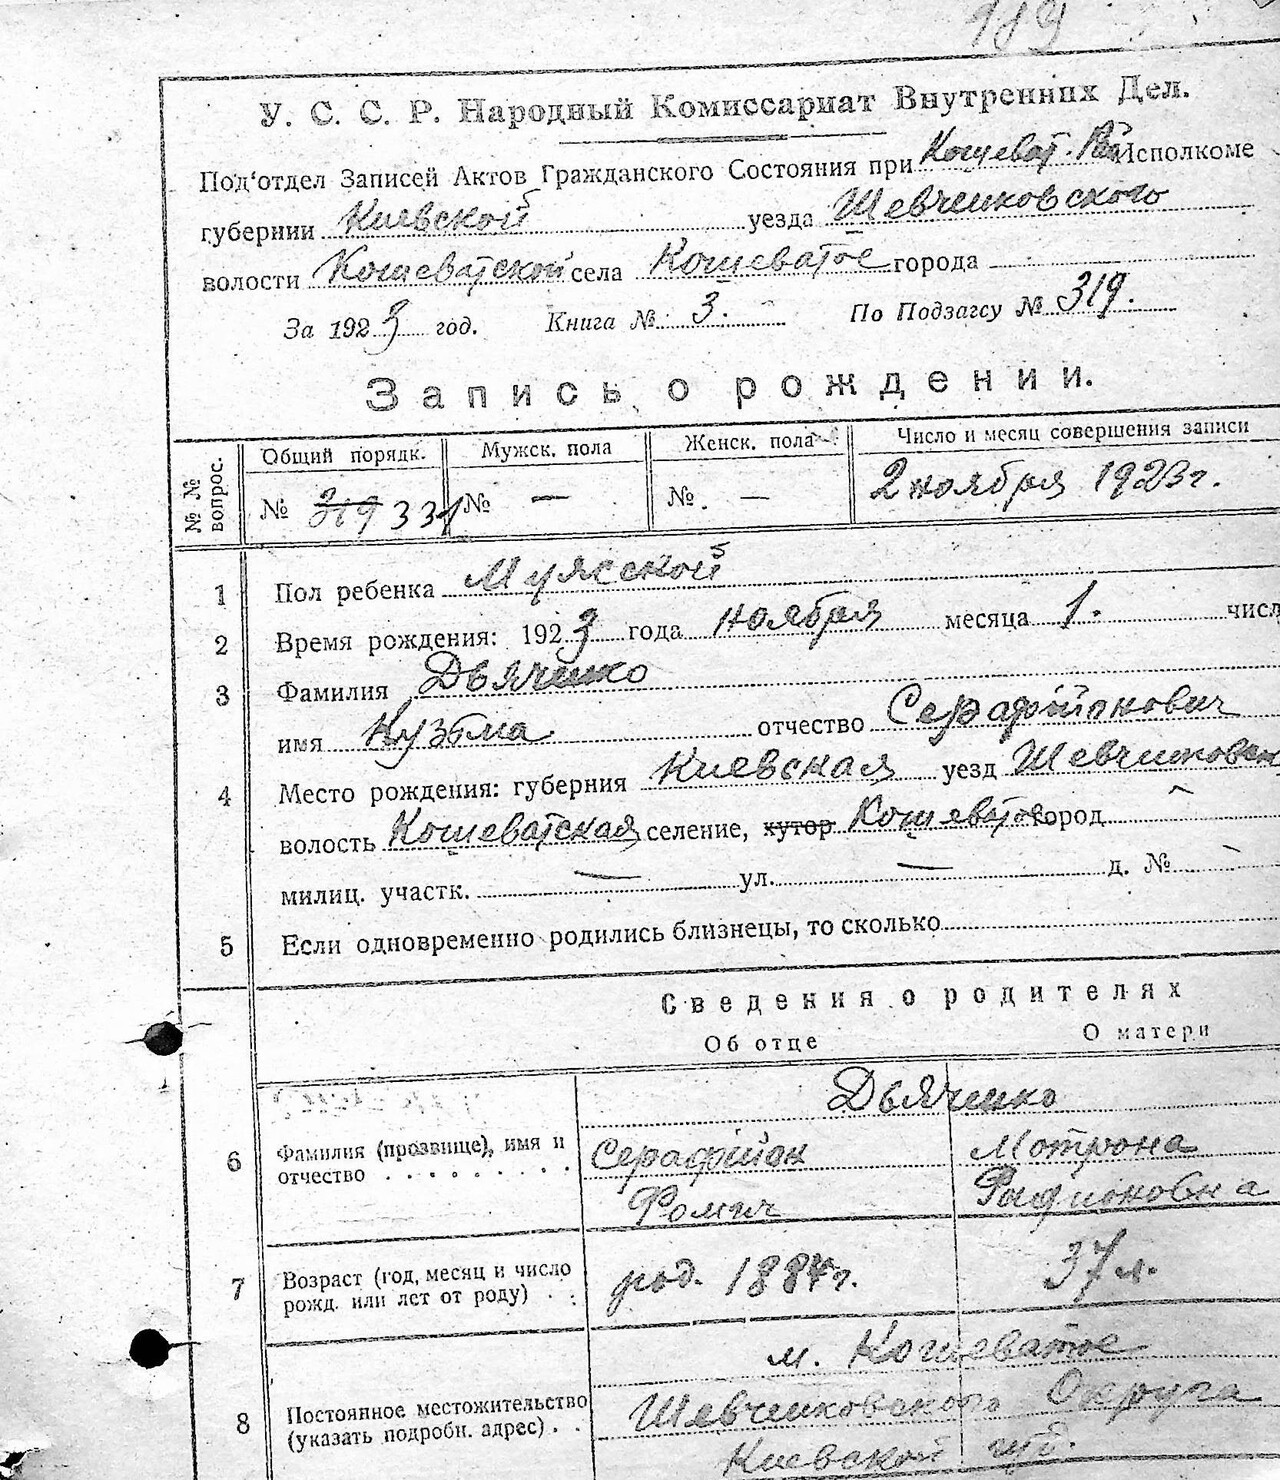 189
У. С. С. Р. Народный Комиссариат Внутренних Дел.
Под'отдел Записей Актов Гражданского Состояния при Кошеват. Рай Исполкоме
губернии Киевской уезда Шевченковского
волости Кошеватской села Кошеватое города
За 1923 год. Книга № 3. По Подзагсу № 319.
Запись о рождении.
№ № вопрос.
Общий порядк. Мужск. пола Женск. пола Число и месяц совершения записи
№ 319 331 № — № — 2 ноября 1923 г.
1 Пол ребенка Мужской
2 Время рождения: 1923 года ноября месяца 1. числ
3 Фамилия Дьяченко
имя Кузьма отчество Серафионович
4 Место рождения: губерния Киевская уезд Шевченковск
волость Кошеватская селение, хутор Кошеватое город —
милиц. участк. — ул. — д. № —
5 Если одновременно родились близнецы, то сколько
Сведения о родителях
Об отце О матери
Дьяченко
6 Фамилия (прозвище), имя и
отчество . . . . . . . .
Серафион Мотрона
Фомич Радионовна
7 Возраст (год, месяц и число
рожд. или лет от роду) . .
род. 1887 г. 37 л.
м. Кошеватое
8 Постоянное местожительство
(указать подробн. адрес) . .
Шевченковского Округа
Киевской губ.